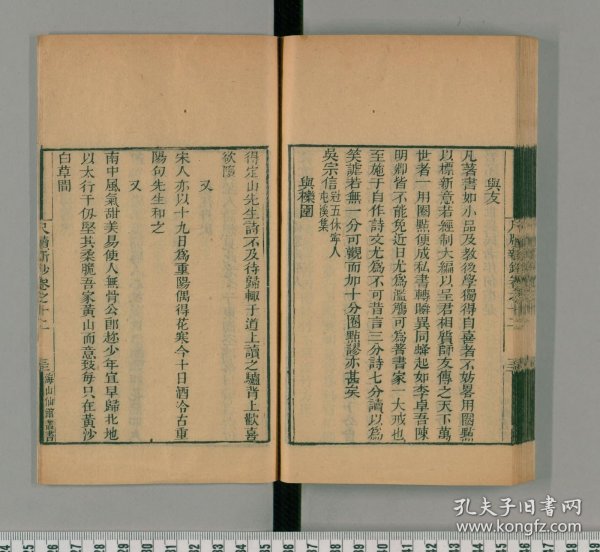 與友
凡著書如小品及教後學獨得自喜者不妨畧用圈點
以標新意若經制大編以至君相質師友傳之天下萬
世者一用圈點便成私書轉瞬異同蜂起如李卓吾陳
明卿皆不能免近日尤爲濫觴可爲著書家一大戒也
至施于自作詩文尤爲不可昔言三分詩七分讀以爲
笑謔若無一分可觀而加十分圈點謬亦甚矣
吳宗信冠五休寧人
屯溪集
與櫟園
得定山先生詩不及待歸輒于道上讀之驢背上歡喜
欲墮
又
宋人亦以十九日爲重陽偶得花寒今十日酒冷古重
陽句先生和之
又
南中風氣甜美易使人無骨公郎妙少年宜早歸北地
以太行千仞堅其柔脆吾家黃山而意致每只在黃沙
白草間
尺牘新鈔卷之十一
海山仙館叢書
孔夫子旧书网
www.kongfz.com
24 25 26 27 28 29 30 31 32 33 34 35 36 37 38 39